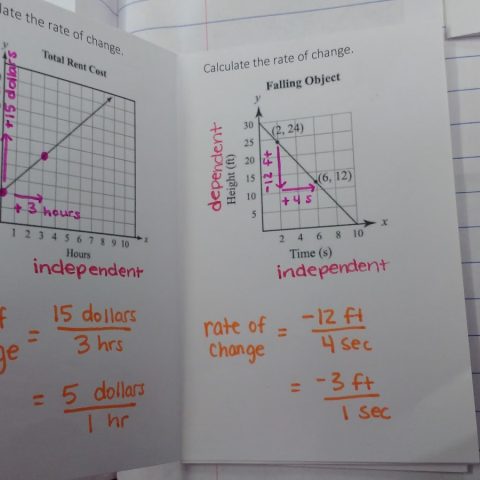 late the rate of change.
Total Rent Cost
y
+15 dollars
+ 3 hours
1 2 3 4 5 6 7 8 9 10
x
Hours
independent
f
ge
= 15 dollars
3 hrs
= 5 dollars
1 hr
Calculate the rate of change.
Falling Object
y
dependent
Height (ft)
30
25
20
15
10
5
(2, 24)
-12 ft
(6, 12)
+4 s
2 4 6 8 10
x
Time (s)
independent
rate of
change
= -12 ft
4 sec
= -3 ft
1 sec